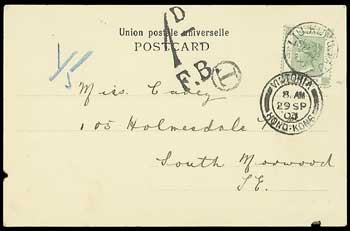 1D.
Union postale universelle
POSTCARD
1/5
F.B. T
Miss Cavey
VICTORIA
8. AM
29 SP
03
HONG-KONG
105 Holmesdale
South Norwood
S.E.